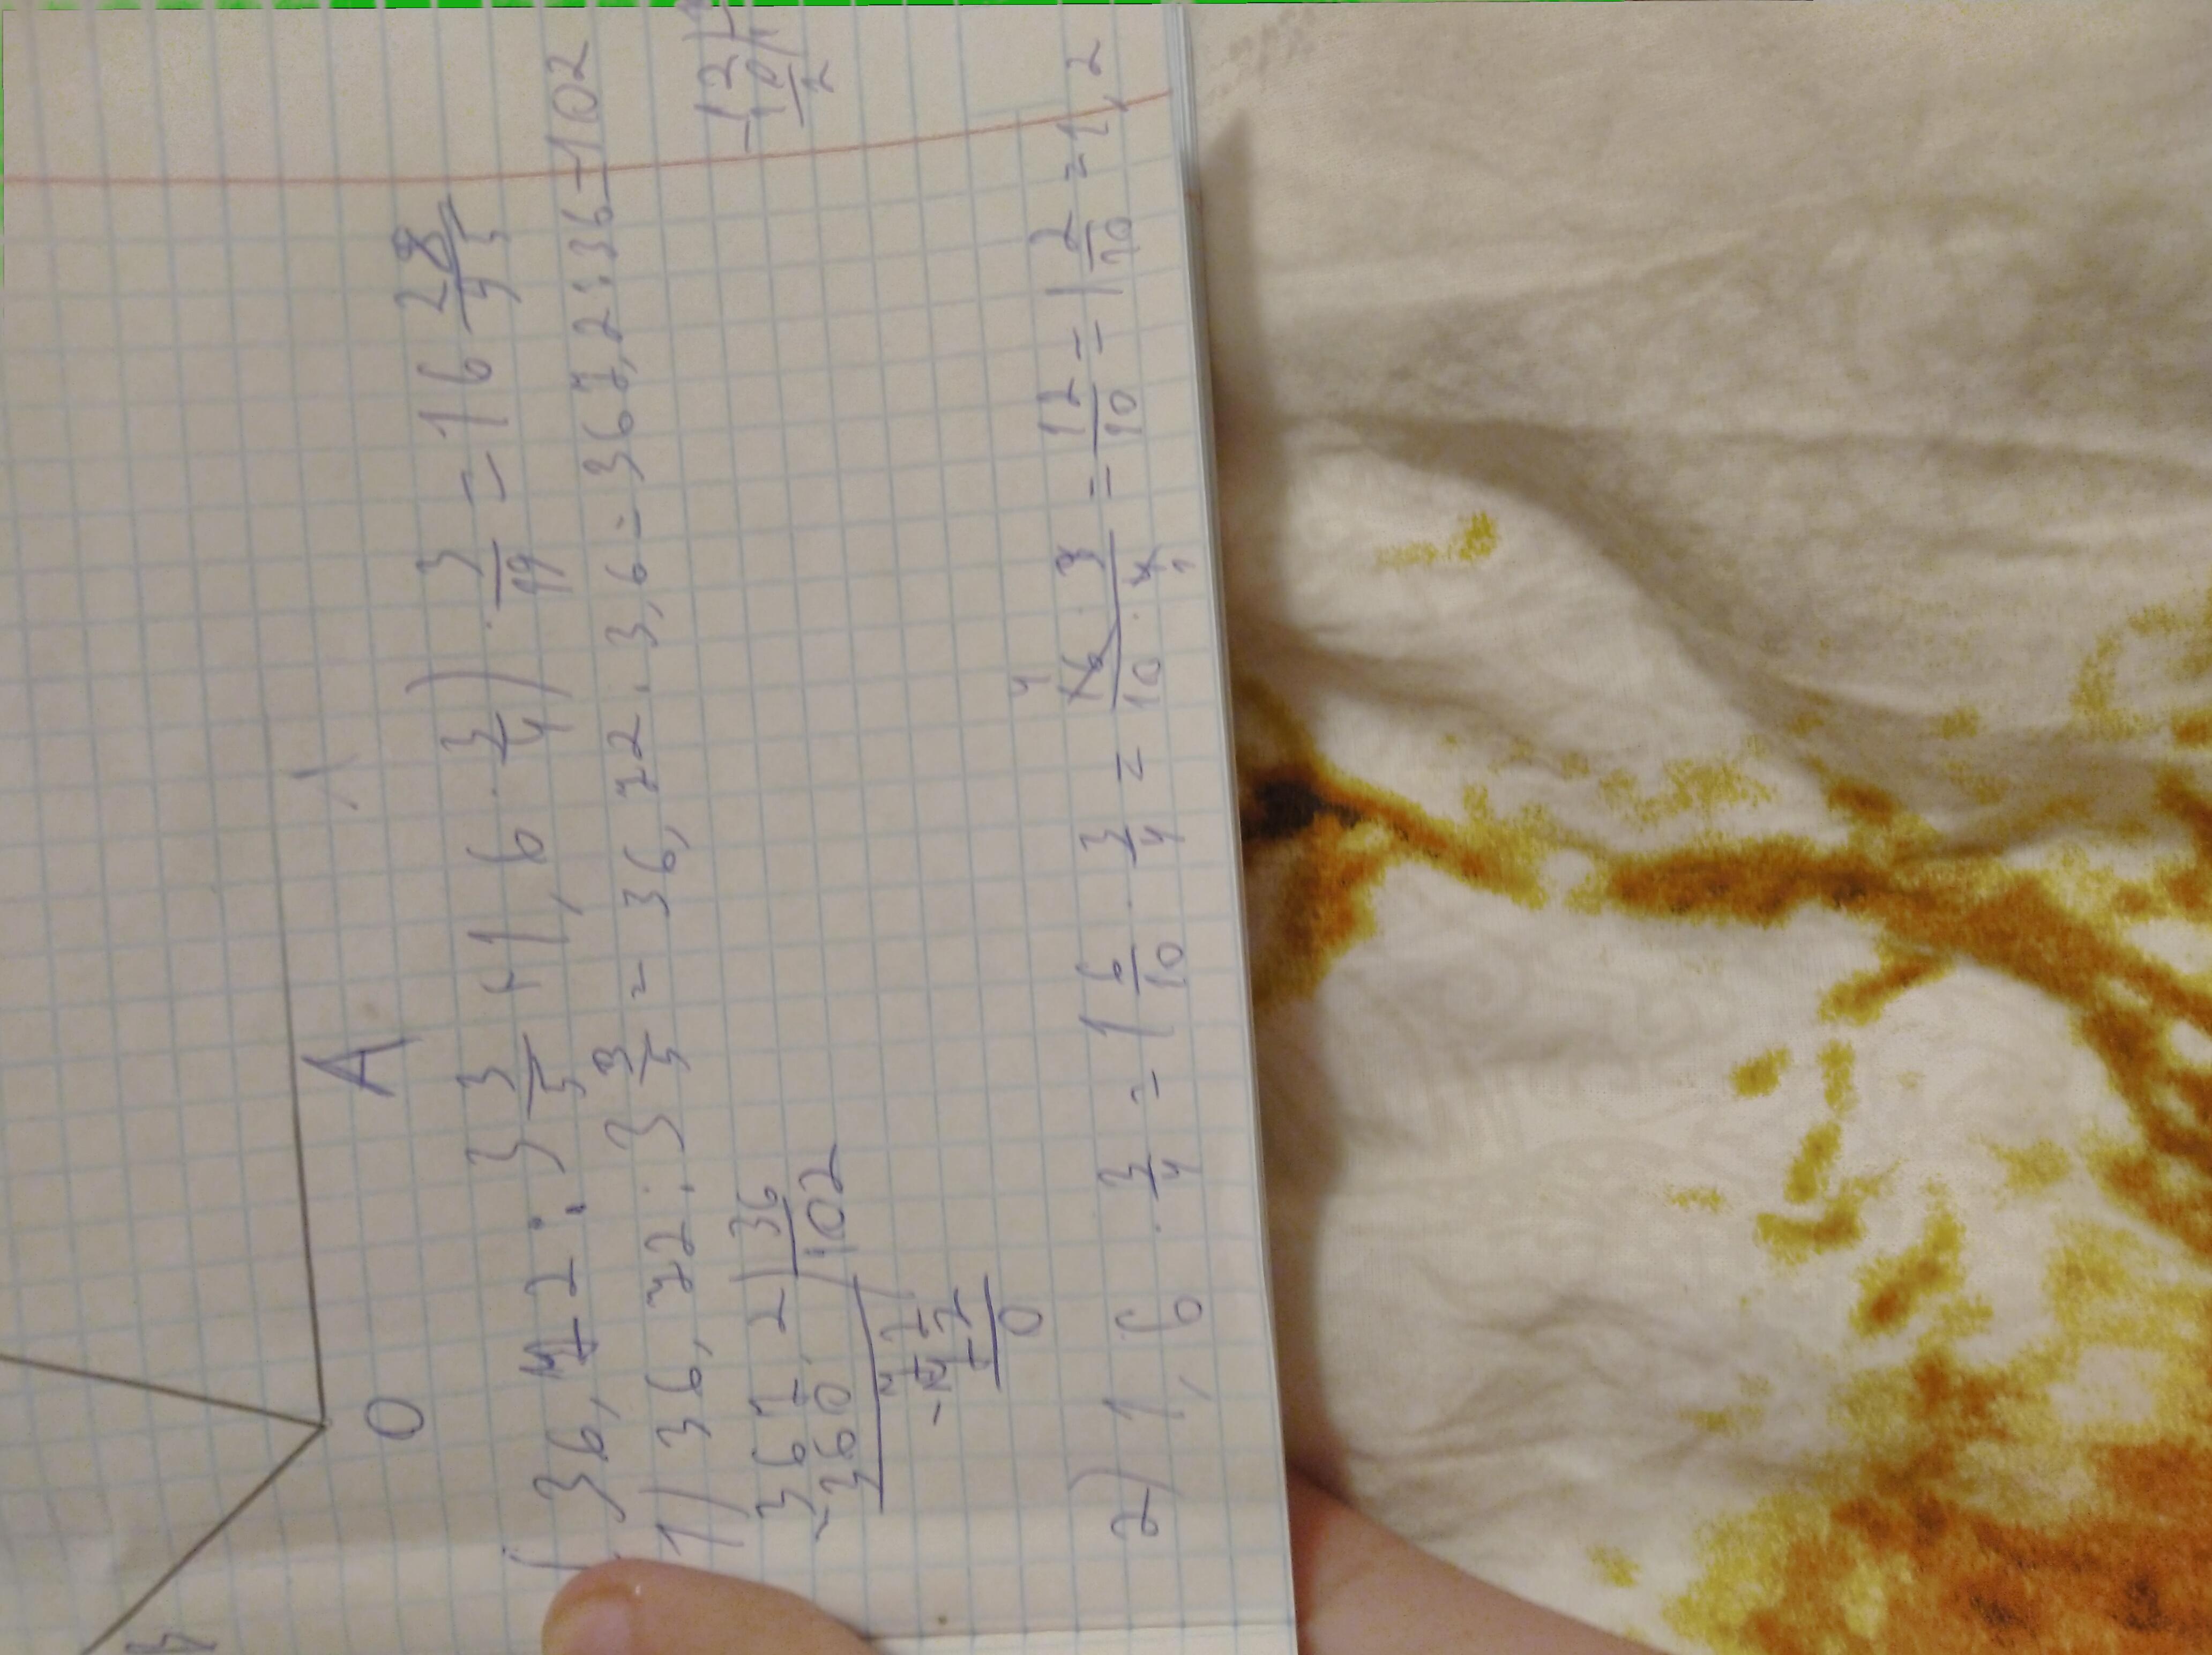 A
O
(36,72 : 3 3/5 + 1,6 · 3/4) · 3/19 = 16 28/45
1) 36,72 : 3 3/5 = 36,72 : 3,6 = 367,2 : 36 = 102
- 367,2 | 36
360 | 102
72
72
0
- 12
10
2
2) 1,6 · 3/4 = 1 6/10 · 3/4 = 16 · 3 / 10 · 4 = 12/10 = 1 2/10 = 1,2